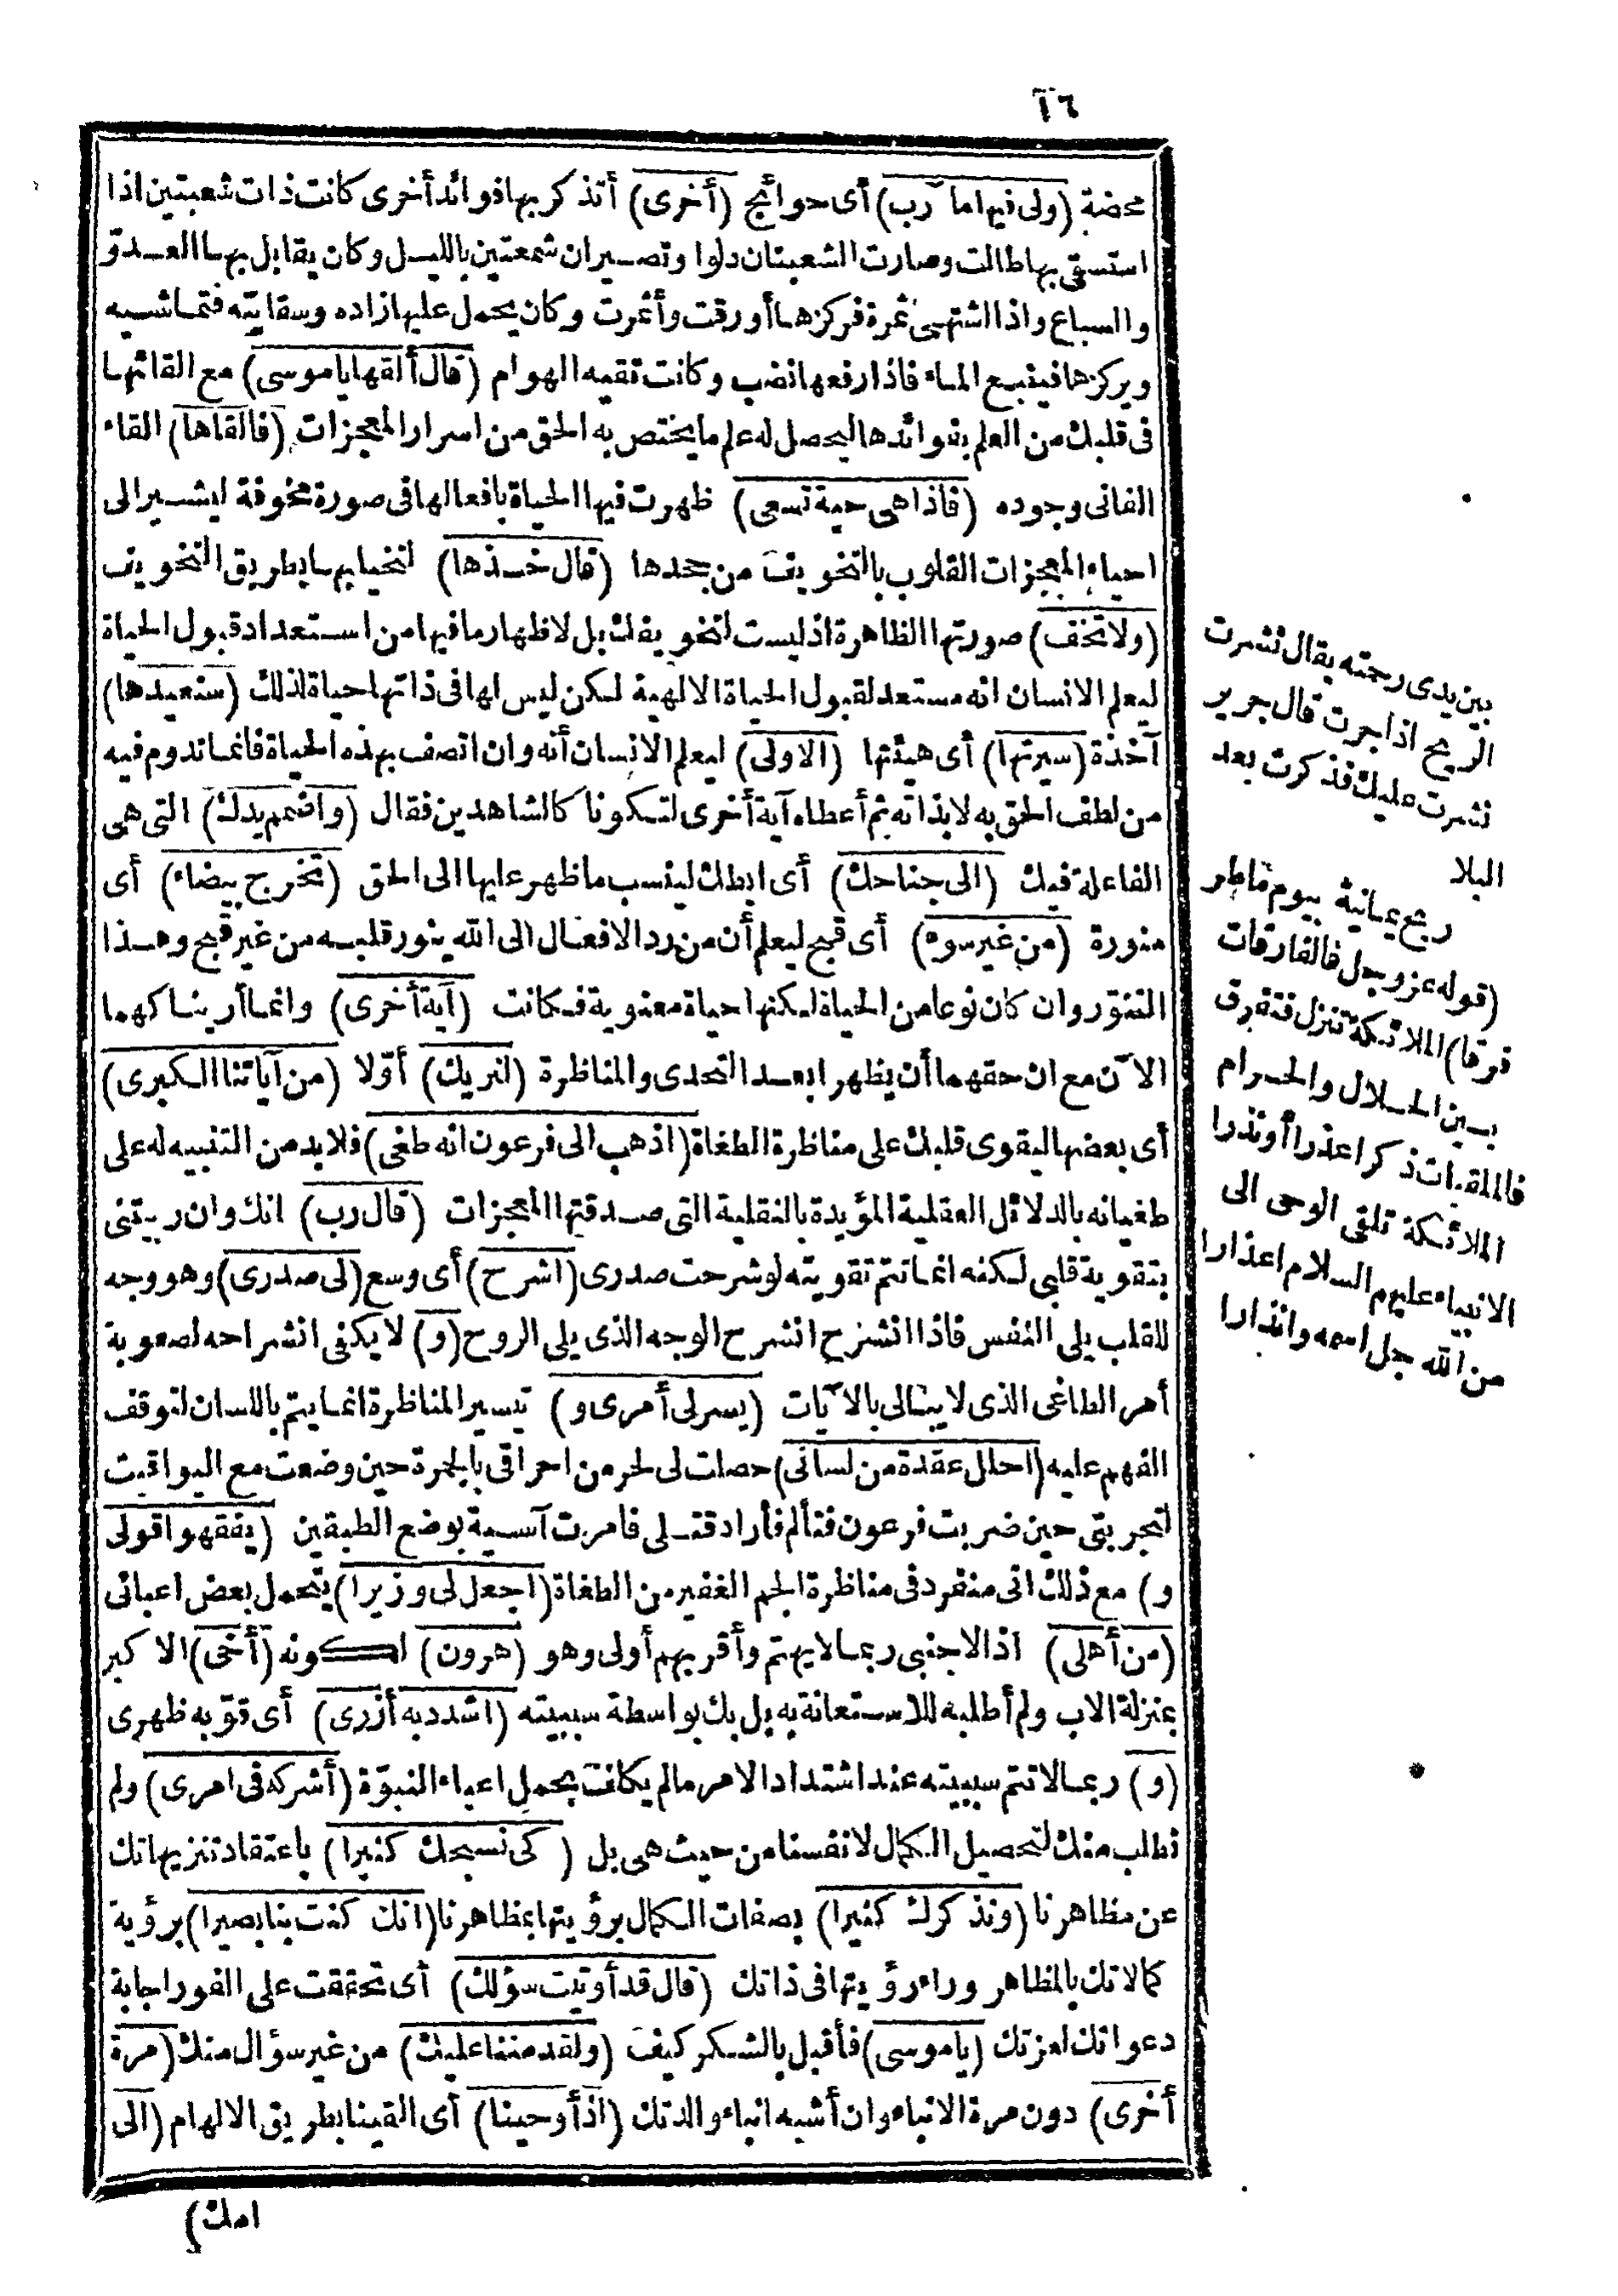 ١٦
محضة (ولى فيها مآرب) أى حوائج (أخرى) أتذكر بها فوائد أخرى كانت ذات شعبتين اذا
استسقى بها طالت وصارت الشعبتان دلوا وتصيران شمعتين بالليل وكان يقابل بها العدوّ
والسباع واذا اشتهى ثمرة فركزها أورقت وأثمرت وكان يحمل عليها زاده وسقايته فتماشيه
ويركزها فينبع الماء فاذا رفعها نضب وكانت تقيه الهوام (قال ألقها ياموسى) مع القائها
فى قلبك من العلم بفوائدها ليحصل له علم ما يختص به الحق من اسرار المعجزات (فالقاها) القاء
الفانى وجوده (فاذا هى حية تسعى) ظهرت فيها الحياة بافعالها فى صورة مخوفة ليشير الى
احياء المعجزات القلوب بالتخويف من جحدها (قال خذها) لتحيا بها بطريق التخويف
(ولا تخف) صورتها الظاهرة اذ ليست لتخويفك بل لاظهار ما فيها من استعداد قبول الحياة
ليعلم الانسان انه مستعد لقبول الحياة الالهية لكن ليس لها فى ذاتها حياة لذلك (سنعيدها)
آخذة (سيرتها) أى هيئتها (الاولى) ليعلم الانسان أنه وان اتصف بهذه الحياة فانما تدوم فيه
من لطف الحق به لا بذاته ثم أعطاه آية أخرى لتكونا كالشاهدين فقال (واضمم يدك) التى هى
الفاعلة فيك (الى جناحك) أى ابطك لينسب ما ظهر عليها الى الحق (تخرج بيضاء) أى
منورة (من غير سوء) أى قبح ليعلم أن من رد الافعال الى الله ينور قلبه من غير قبح وهذا
التنوّر وان كان نوعا من الحياة لكنها حياة معنوية فكانت (آية أخرى) وانما أريناكهما
الآن مع ان حقهما أن يظهرا بعد التحدى والمناظرة (لنريك) أوّلا (من آياتنا الكبرى)
أى بعضها ليقوى قلبك على مناظرة الطغاة (اذهب الى فرعون انه طغى) فلا بد من التنبيه له على
طغيانه بالدلائل العقلية المؤيدة بالنقلية التى صدقتها المعجزات (قال رب) انك وان ربيتنى
بتقوية قلبى لكنه انما تتم تقويته لو شرحت صدرى (اشرح) أى وسع (لى صدرى) وهو وجه
للقلب يلى النفس فاذا انشرح انشرح الوجه الذى يلى الروح (و) لا يكفى انشراحه لصعوبة
أمر الطاغى الذى لا يبالى بالآيات (يسر لى أمرى و) تيسير المناظرة انما يتم باللسان لتوقف
الفهم عليه (احلل عقدة من لسانى) حصلت لى لخرمن احراقى بالجمرة حين وضعت مع اليواقيت
لتجربتى حين ضربت فرعون فتألم فأراد قتلى فامرت آسية بوضع الطبقين (يفقهوا قولى
و) مع ذلك انى منفرد فى مناظرة الجم الغفير من الطغاة (اجعل لى وزيرا) يتحمل بعض اعبائى
(من أهلى) اذ الاجنبى ربما لا يهتم وأقربهم أولى وهو (هرون) لكونه (أخى) الاكبر
بمنزلة الاب ولم أطلبه للاستعانة به بل بك بواسطة سببيته (اشدد به أزرى) أى قوّ به ظهرى
(و) ربما لا تتم سببيته عند اشتداد الامر ما لم يكلف بحمل اعباء النبوّة (أشركه فى امرى) ولم
نطلب منك لتحصيل الكمال لانفسنا من حيث هى بل (كى نسبحك كثيرا) باعتقاد تنزيهاتك
عن مظاهرنا (ونذكرك كثيرا) بصفات الكمال برؤيتها بمظاهرنا (انك كنت بنا بصيرا) برؤية
كمالاتك بالمظاهر وراء رؤيتها فى ذاتك (قال قد أوتيت سؤلك) أى تحققت على الفور اجابة
دعواتك لعزتك (ياموسى) فأقبل بالشكر كيف (ولقد مننا عليك) من غير سؤال منك (مرة
أخرى) دون مرة الانباء وان أشبه انباء والدتك (اذ أوحينا) أى القينا بطريق الالهام (الى
امك)
بين يدى رحمته يقال نشرت
الريح اذا جرت قال جرير
نشرت عليك فذكرت بعد
البلا
ريح يمانية بيوم ماطر
(قوله عز وجل فالفارقات
فرقا) الملائكة تنزل فتفرق
بين الحلال والحرام
فالملقيات ذكرا عذرا أو نذرا
الملائكة تلقى الوحى الى
الانبياء عليهم السلام اعذارا
من الله جل اسمه وانذارا